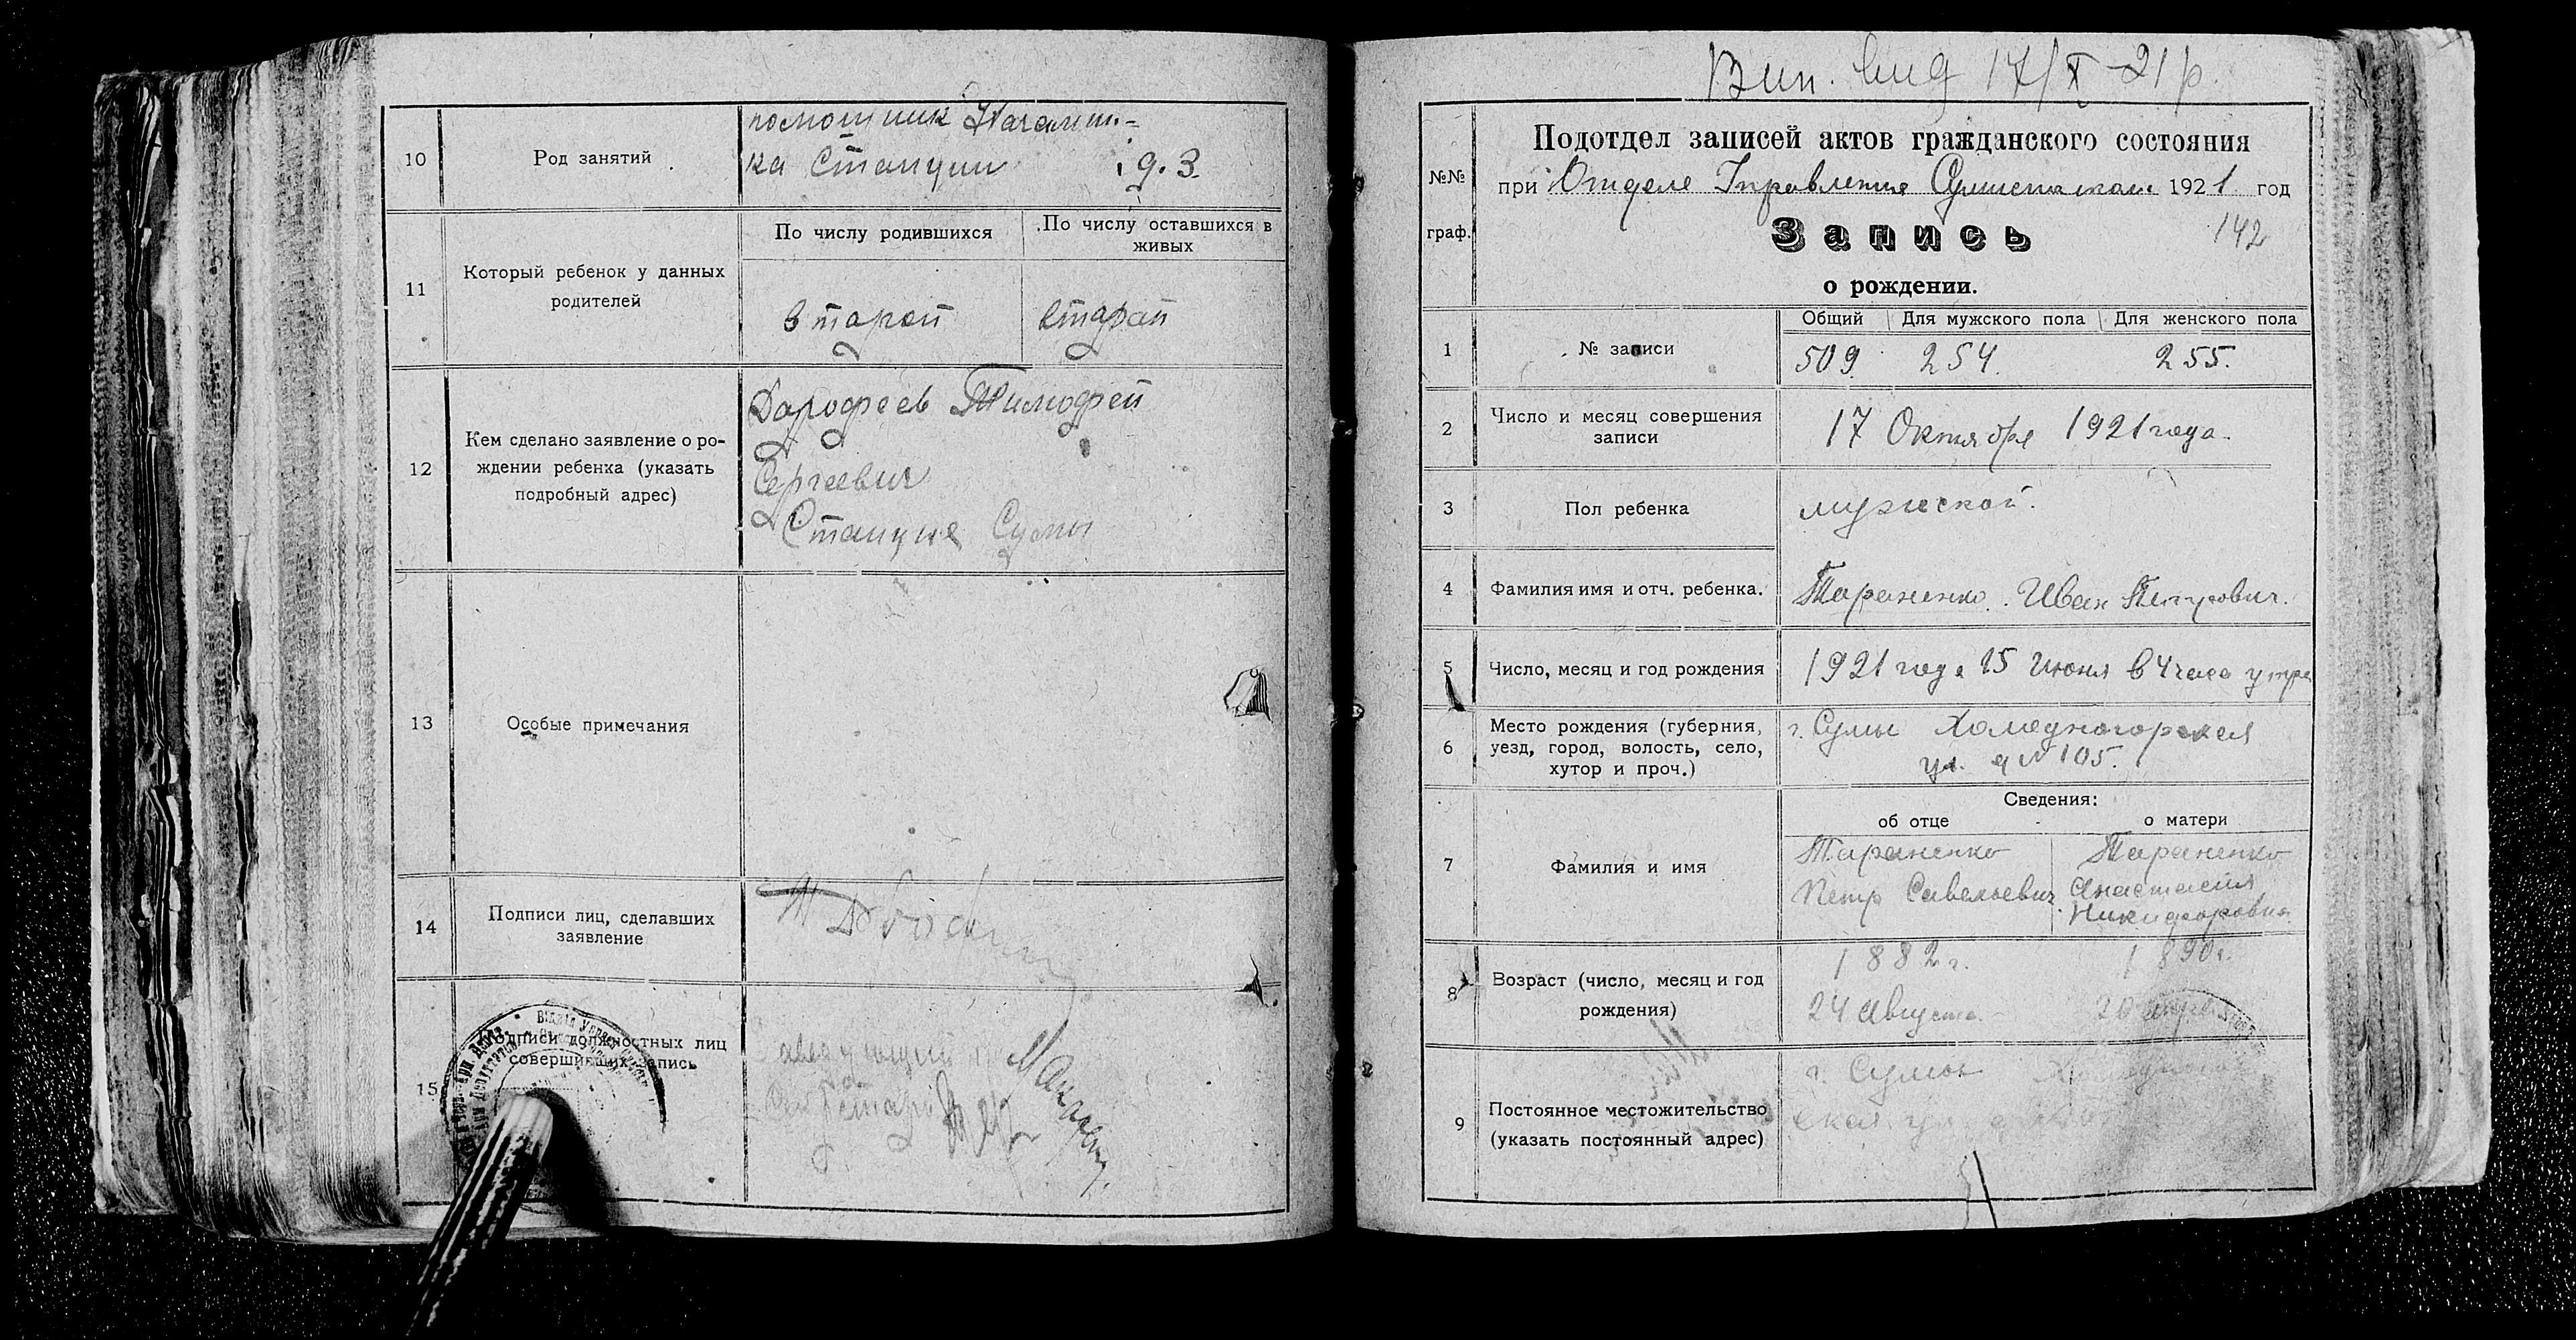 10
Род занятий
помощник Начальни-
ка Станции
9.3.
11
Который ребенок у данных
родителей
По числу родившихся
По числу оставшихся в
живых
второй
второй
12
Кем сделано заявление о ро-
ждении ребенка (указать
подробный адрес)
Дорофеев Тимофей
Сергеевич
Станция Сумы
13
Особые примечания
14
Подписи лиц, сделавших
заявление
15
Подписи должностных лиц
совершивших запись
Вип. вид 17/X-21 р.
№№
граф.
Подотдел записей актов гражданского состояния
при Отделе Управления 1921 год
142
Запись
о рождении.
1
№ записи
Общий Для мужского пола Для женского пола
509 254. 255.
2
Число и месяц совершения
записи
17 Октября 1921 года.
3
Пол ребенка
мужской.
4
Фамилия имя и отч. ребенка.
Тараненко Иван Петрович.
5
Число, месяц и год рождения
1921 года 15 Июня в 4 часа утра
6
Место рождения (губерния,
уезд, город, волость, село,
хутор и проч.)
г. Сумы Холодногорская
ул. д № 105.
Сведения:
об отце
о матери
7
Фамилия и имя
Тараненко
Петр Савельевич
Тараненко
Анастасия
Никифоровна
8
Возраст (число, месяц и год
рождения)
1882 г.
24 Августа.
1890 г.
20
9
Постоянное местожительство
(указать постоянный адрес)
г. Сумы
ская ул.